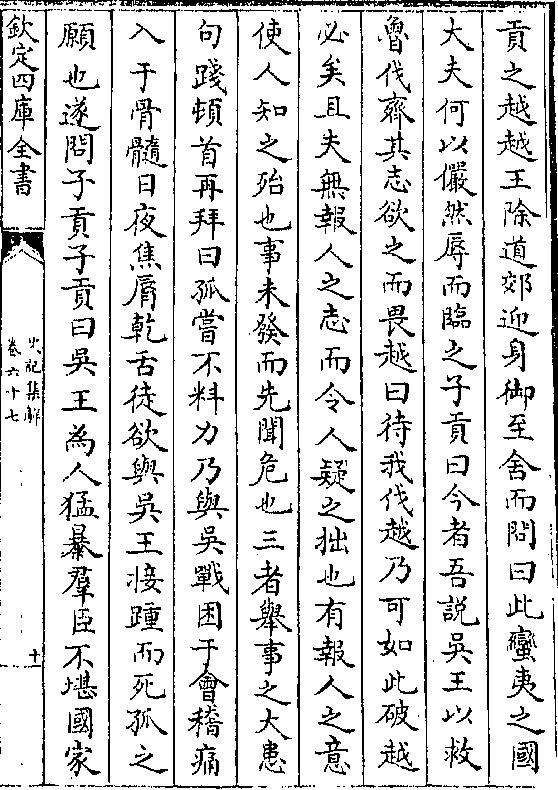 貢之越越王除道郊迎身御至舍而問曰此蠻夷之國
大夫何以儼然辱而臨之子貢曰今者吾說吳王以救
魯伐齊其志欲之而畏越曰待我伐越乃可如此破越
必矣且夫無報人之志而令人疑之拙也有報人之意
使人知之殆也事未發而先聞危也三者舉事之大患
句踐頓首再拜曰孤嘗不料力乃與吳戰困于會稽痛
入于骨髓日夜焦脣乾舌徒欲與吳王接踵而死孤之
願也遂問子貢子貢曰吳王為人猛暴羣臣不堪國家
欽定四庫全書
史記集解
卷六十七
十